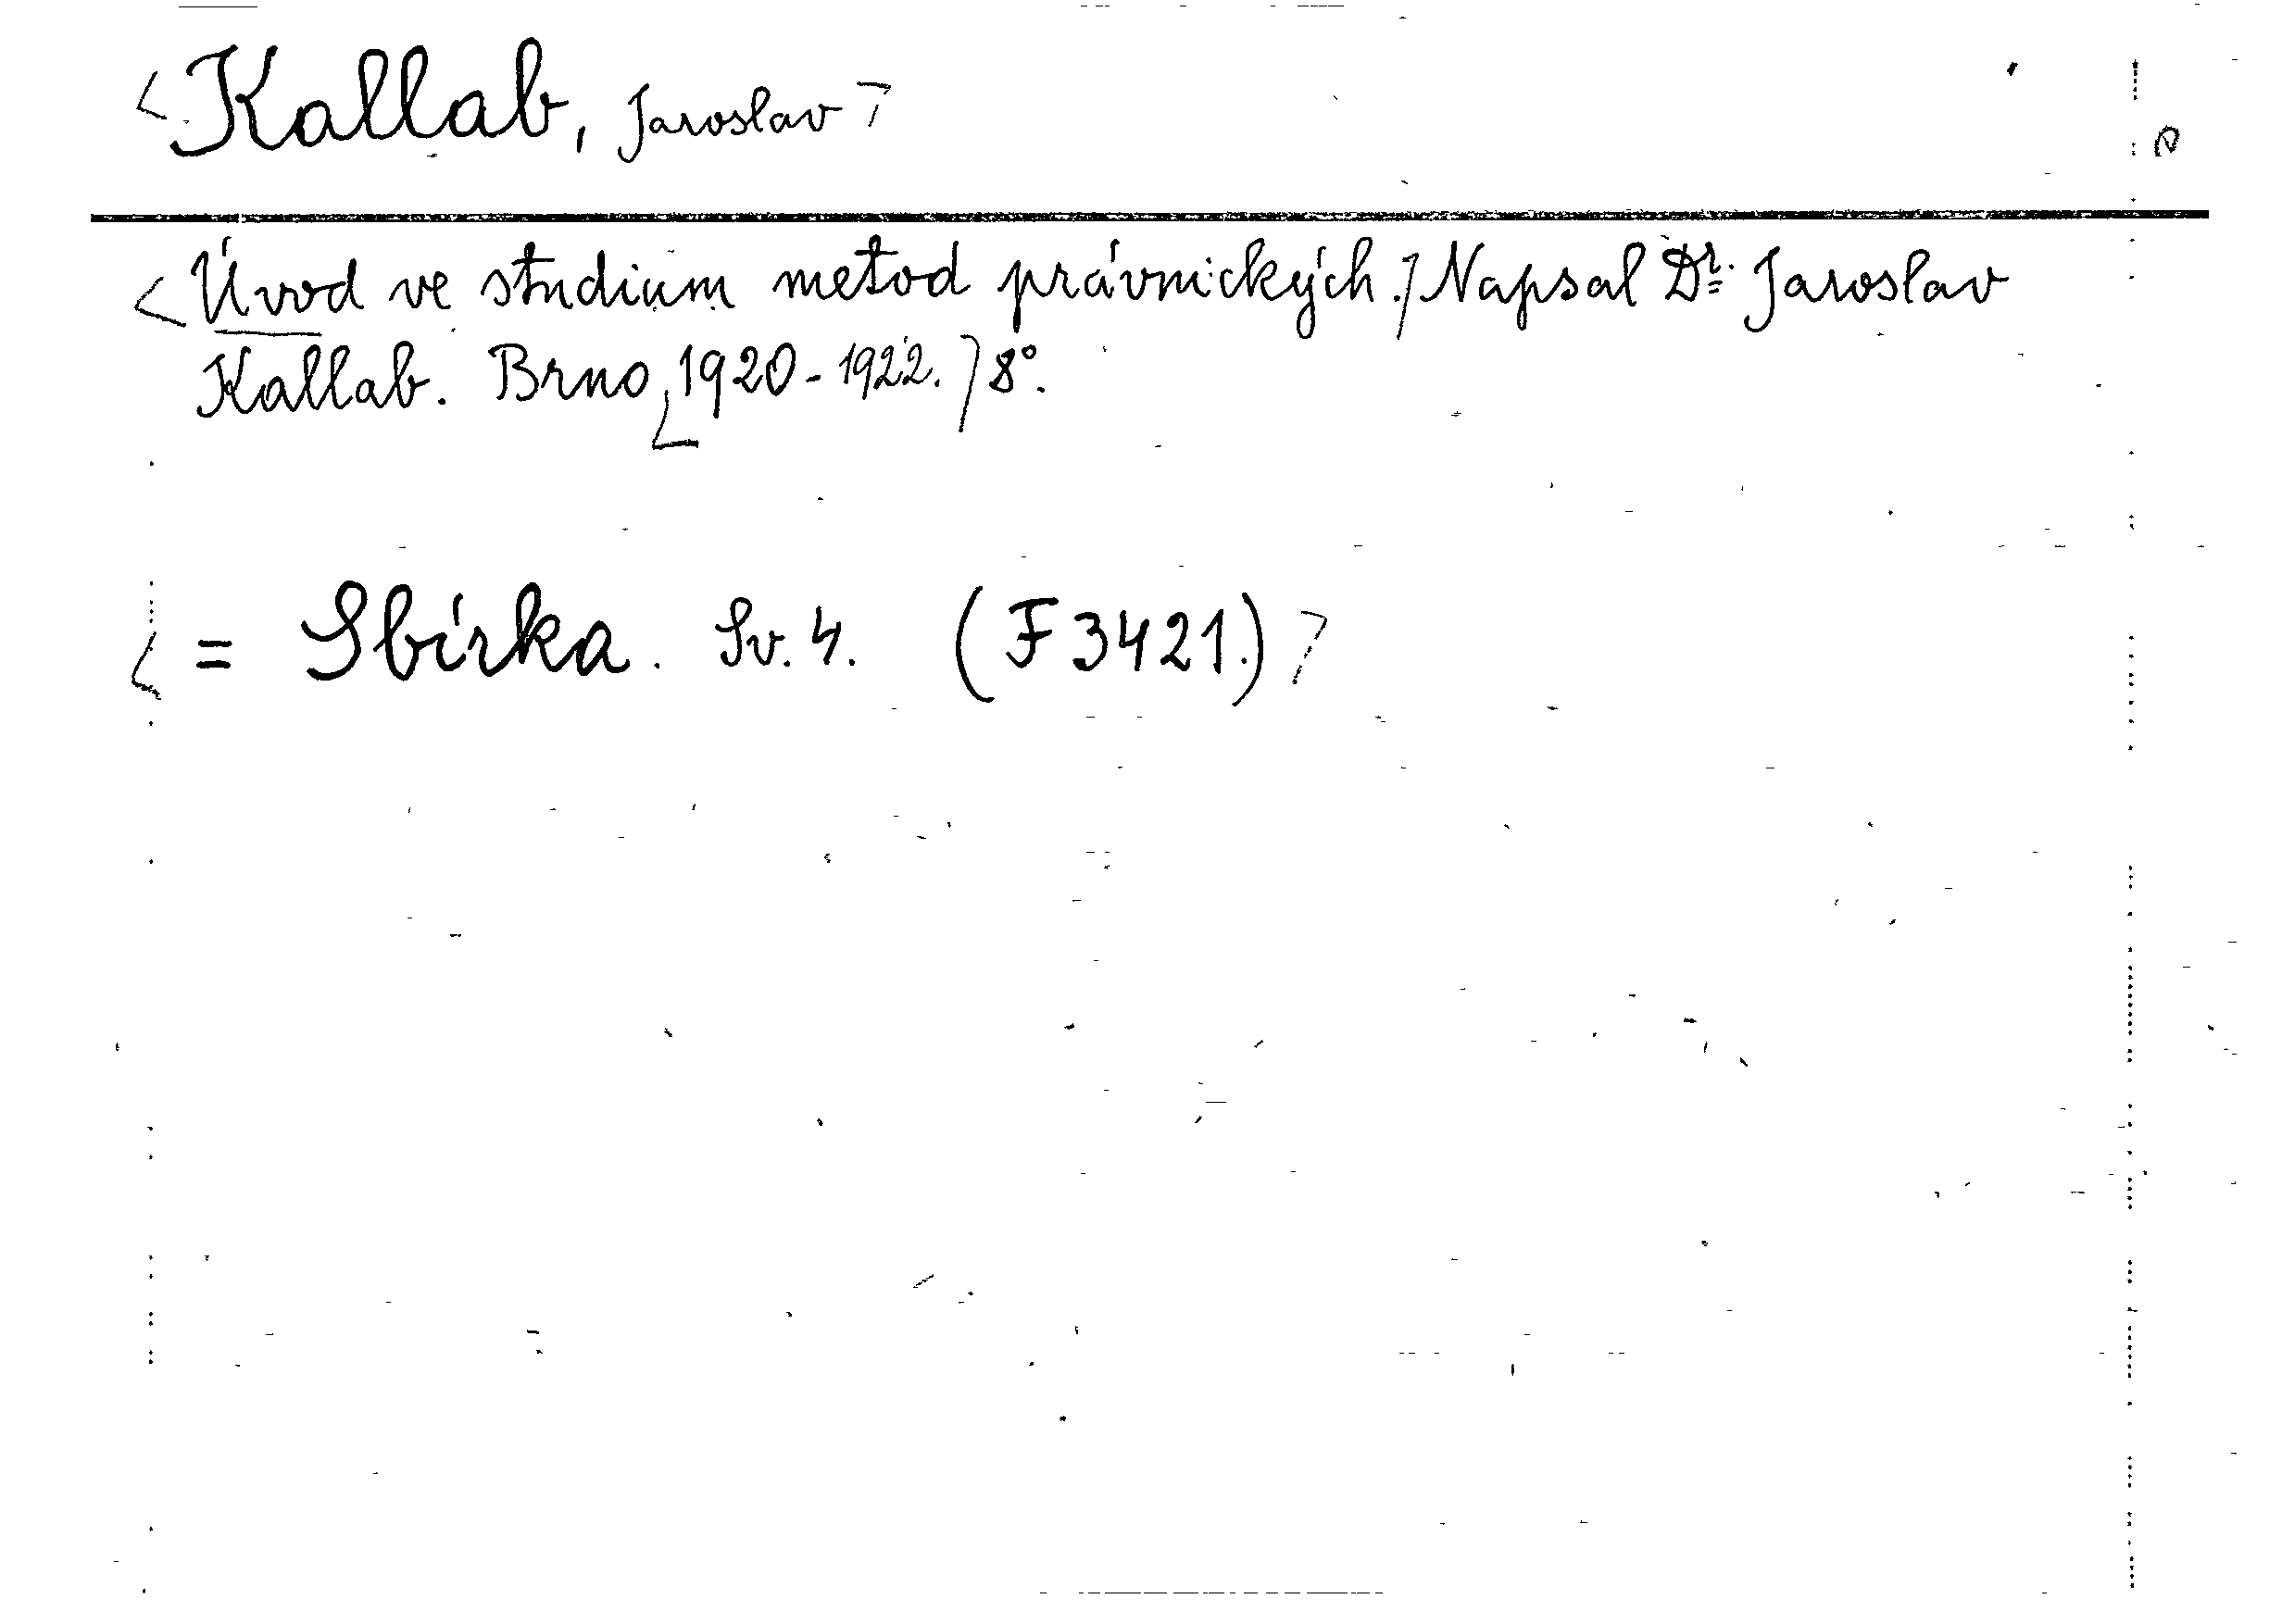 <Kallab, Jaroslav>
<Úvod ve studium metod právnických.] Napsal Dr. Jaroslav
Kallab. Brno, [1920-1922.] 8°.
<= Sbírka. Sv. 4. (F 3421.)>